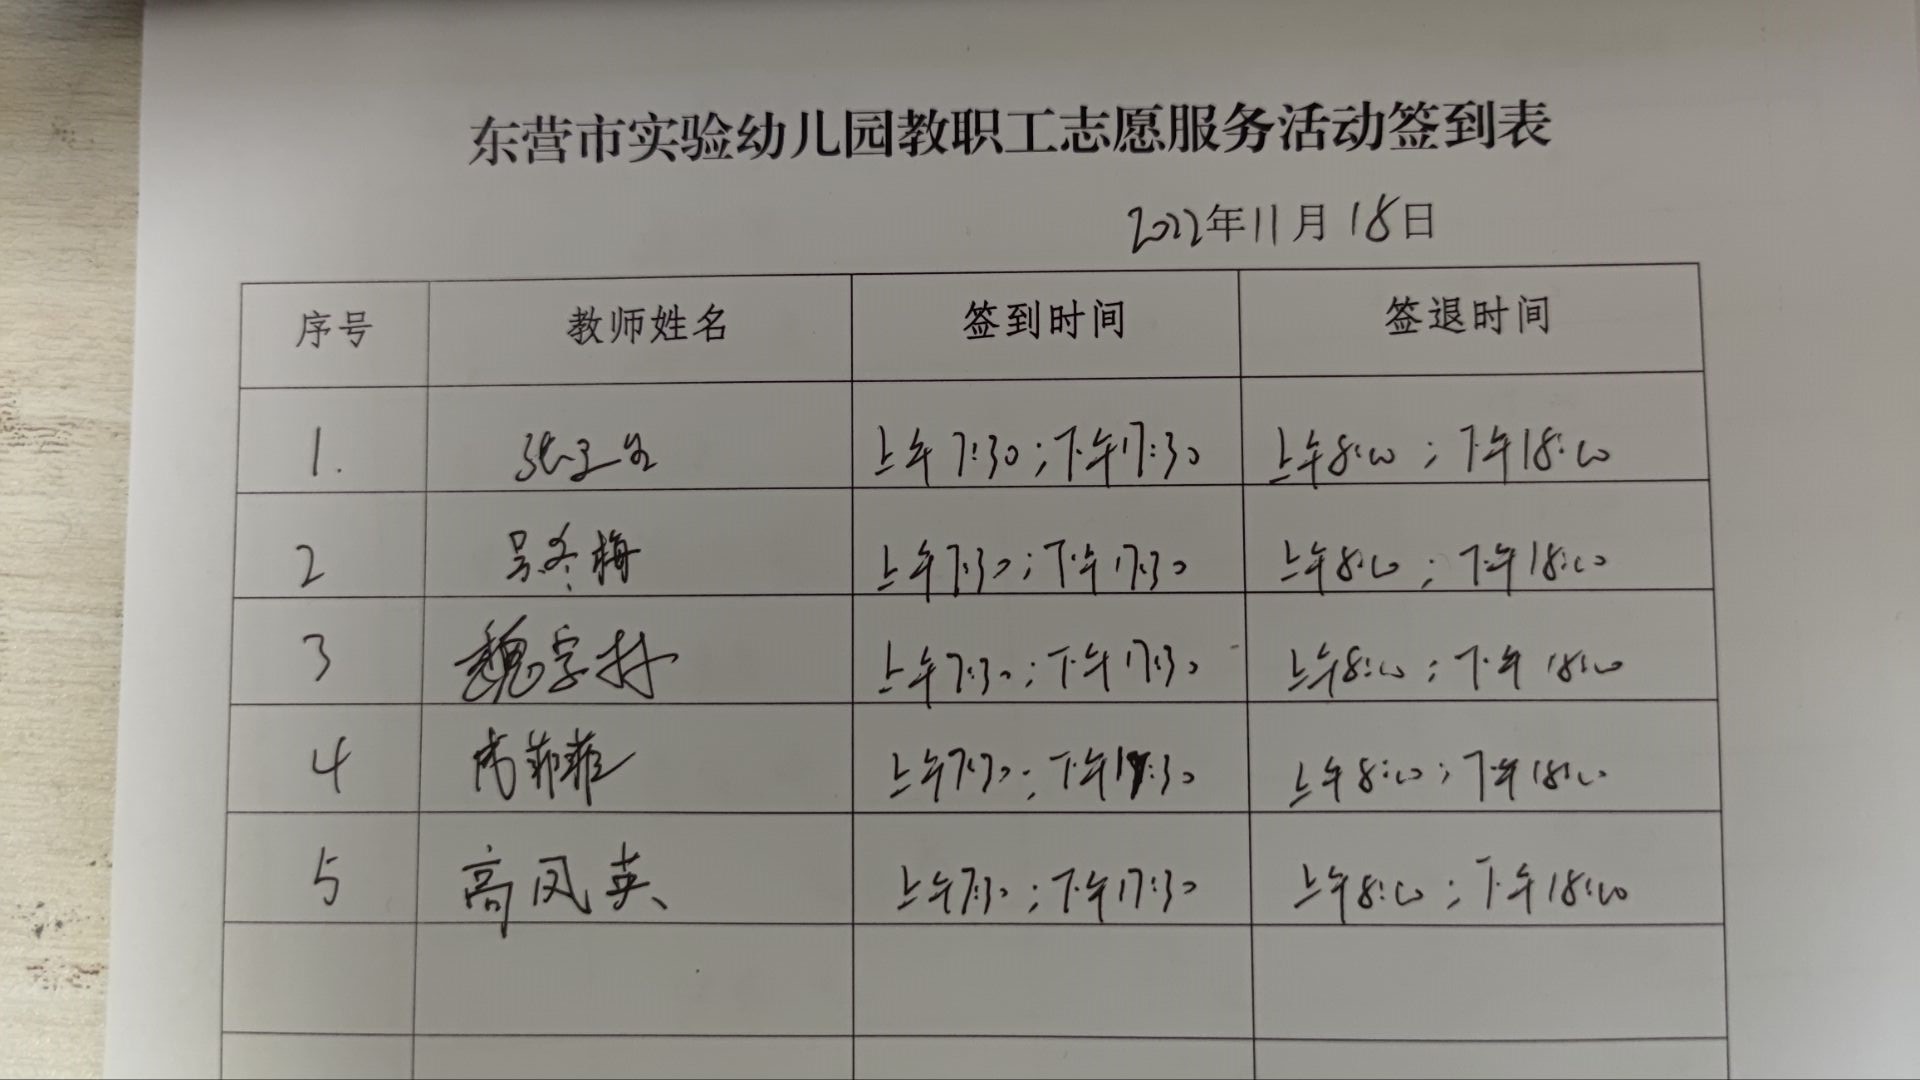 东营市实验幼儿园教职工志愿服务活动签到表
2022年11月18日
序号 教师姓名 签到时间 签退时间
1. 上午7:30;下午17:30 上午8:00;下午18:00
2 吴冬梅 上午7:30;下午17:30 上午8:00;下午18:00
3 魏字林 上午7:30;下午17:30 上午8:00;下午18:00
4 菲菲 上午7:30;下午17:30 上午8:00;下午18:00
5 高凤英 上午7:30;下午17:30 上午8:00;下午18:00